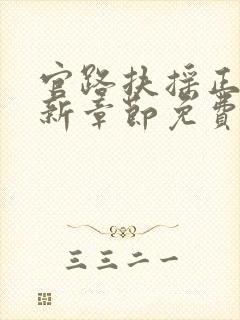 官路扶摇正
新章節免費
三三二一